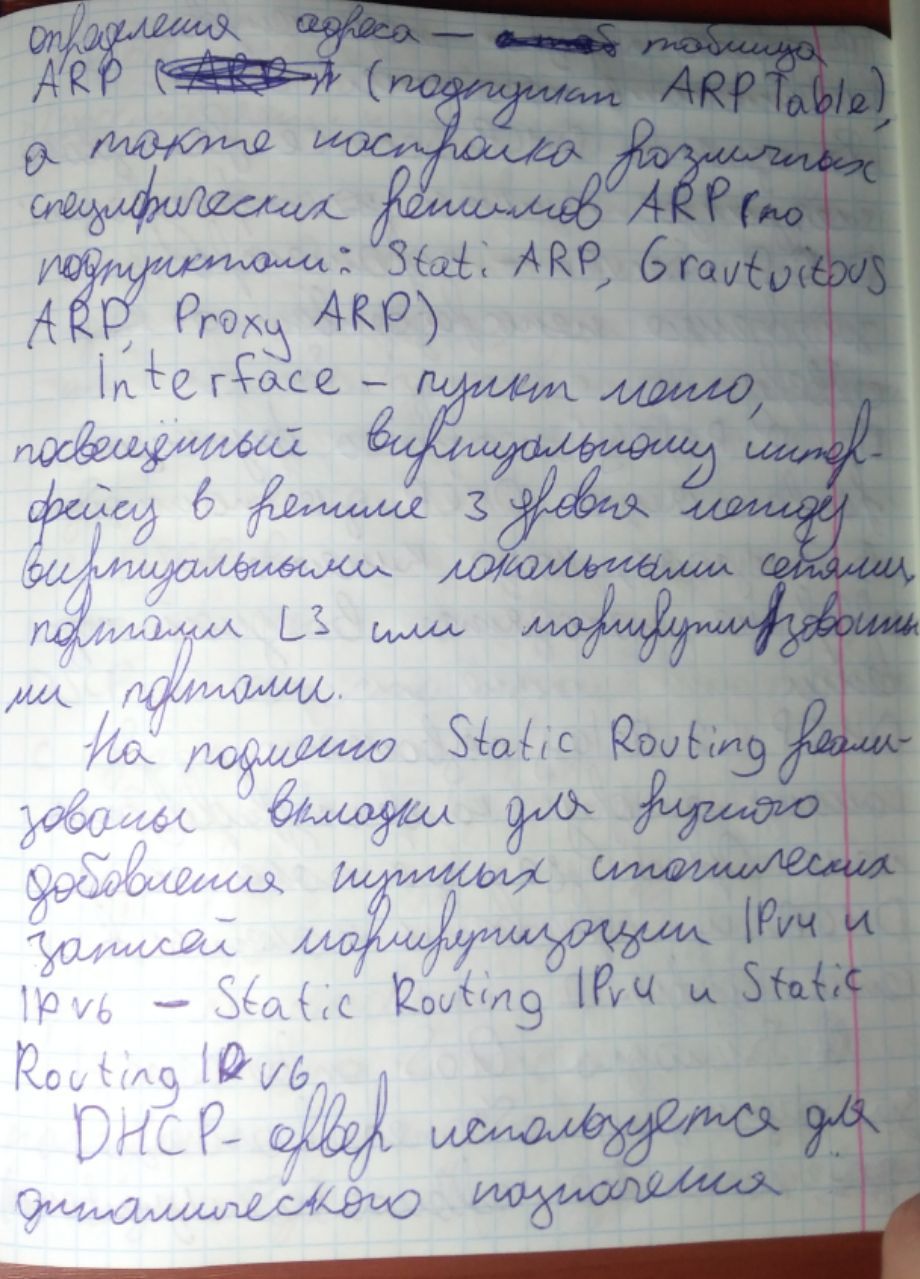 определения адреса — таблица
ARP (подпункт ARP Table),
а также настройка различных
специфических режимов ARP (по
подпунктами: Stati ARP, Gravtvitovs
ARP, Proxy ARP)
Interface – пункт меню,
посвещённый виртуальному интер-
фейсу в режиме 3 уровня между
виртуальными локальными сетями,
портами L3 или маршрутизированны
ми портами.
На подменю Static Routing реали-
зованы вкладки для ручного
добавления нужных статических
записей маршрутизации IPv4 и
IPv6 – Static Routing IPv4 и Static
Routing IPv6
DHCP- сервер используется для
динамического назначения